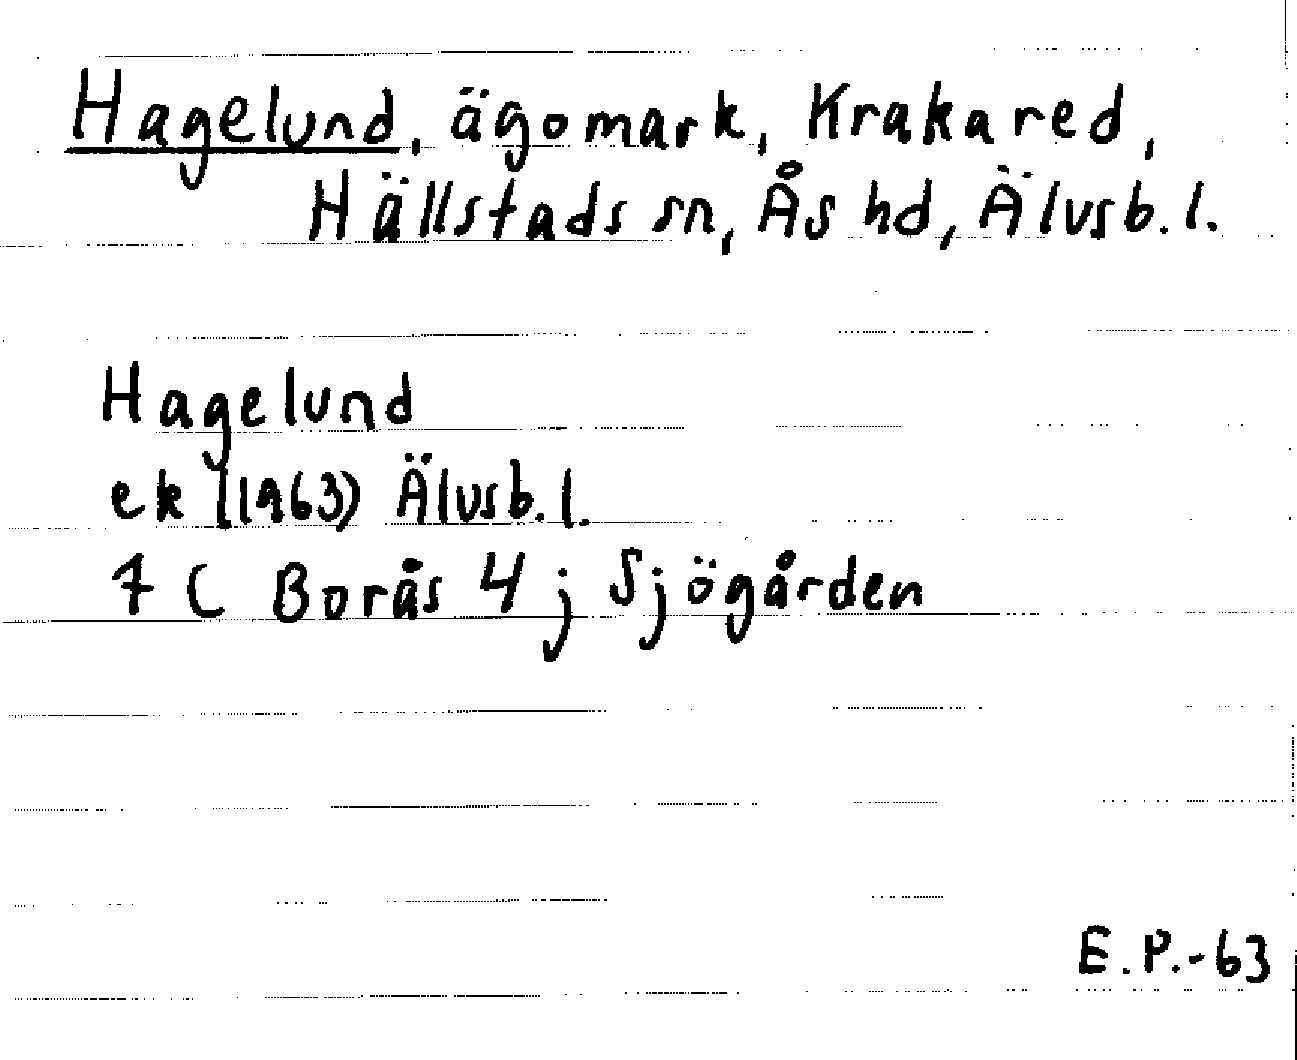 Hagelund, ägomark, Krakared,
Hällstads sn, Ås hd, Älvsb. l.
Hagelund
ek (1963) Älvsb. l.
7 C Borås 4 j Sjögården
E.P.-63